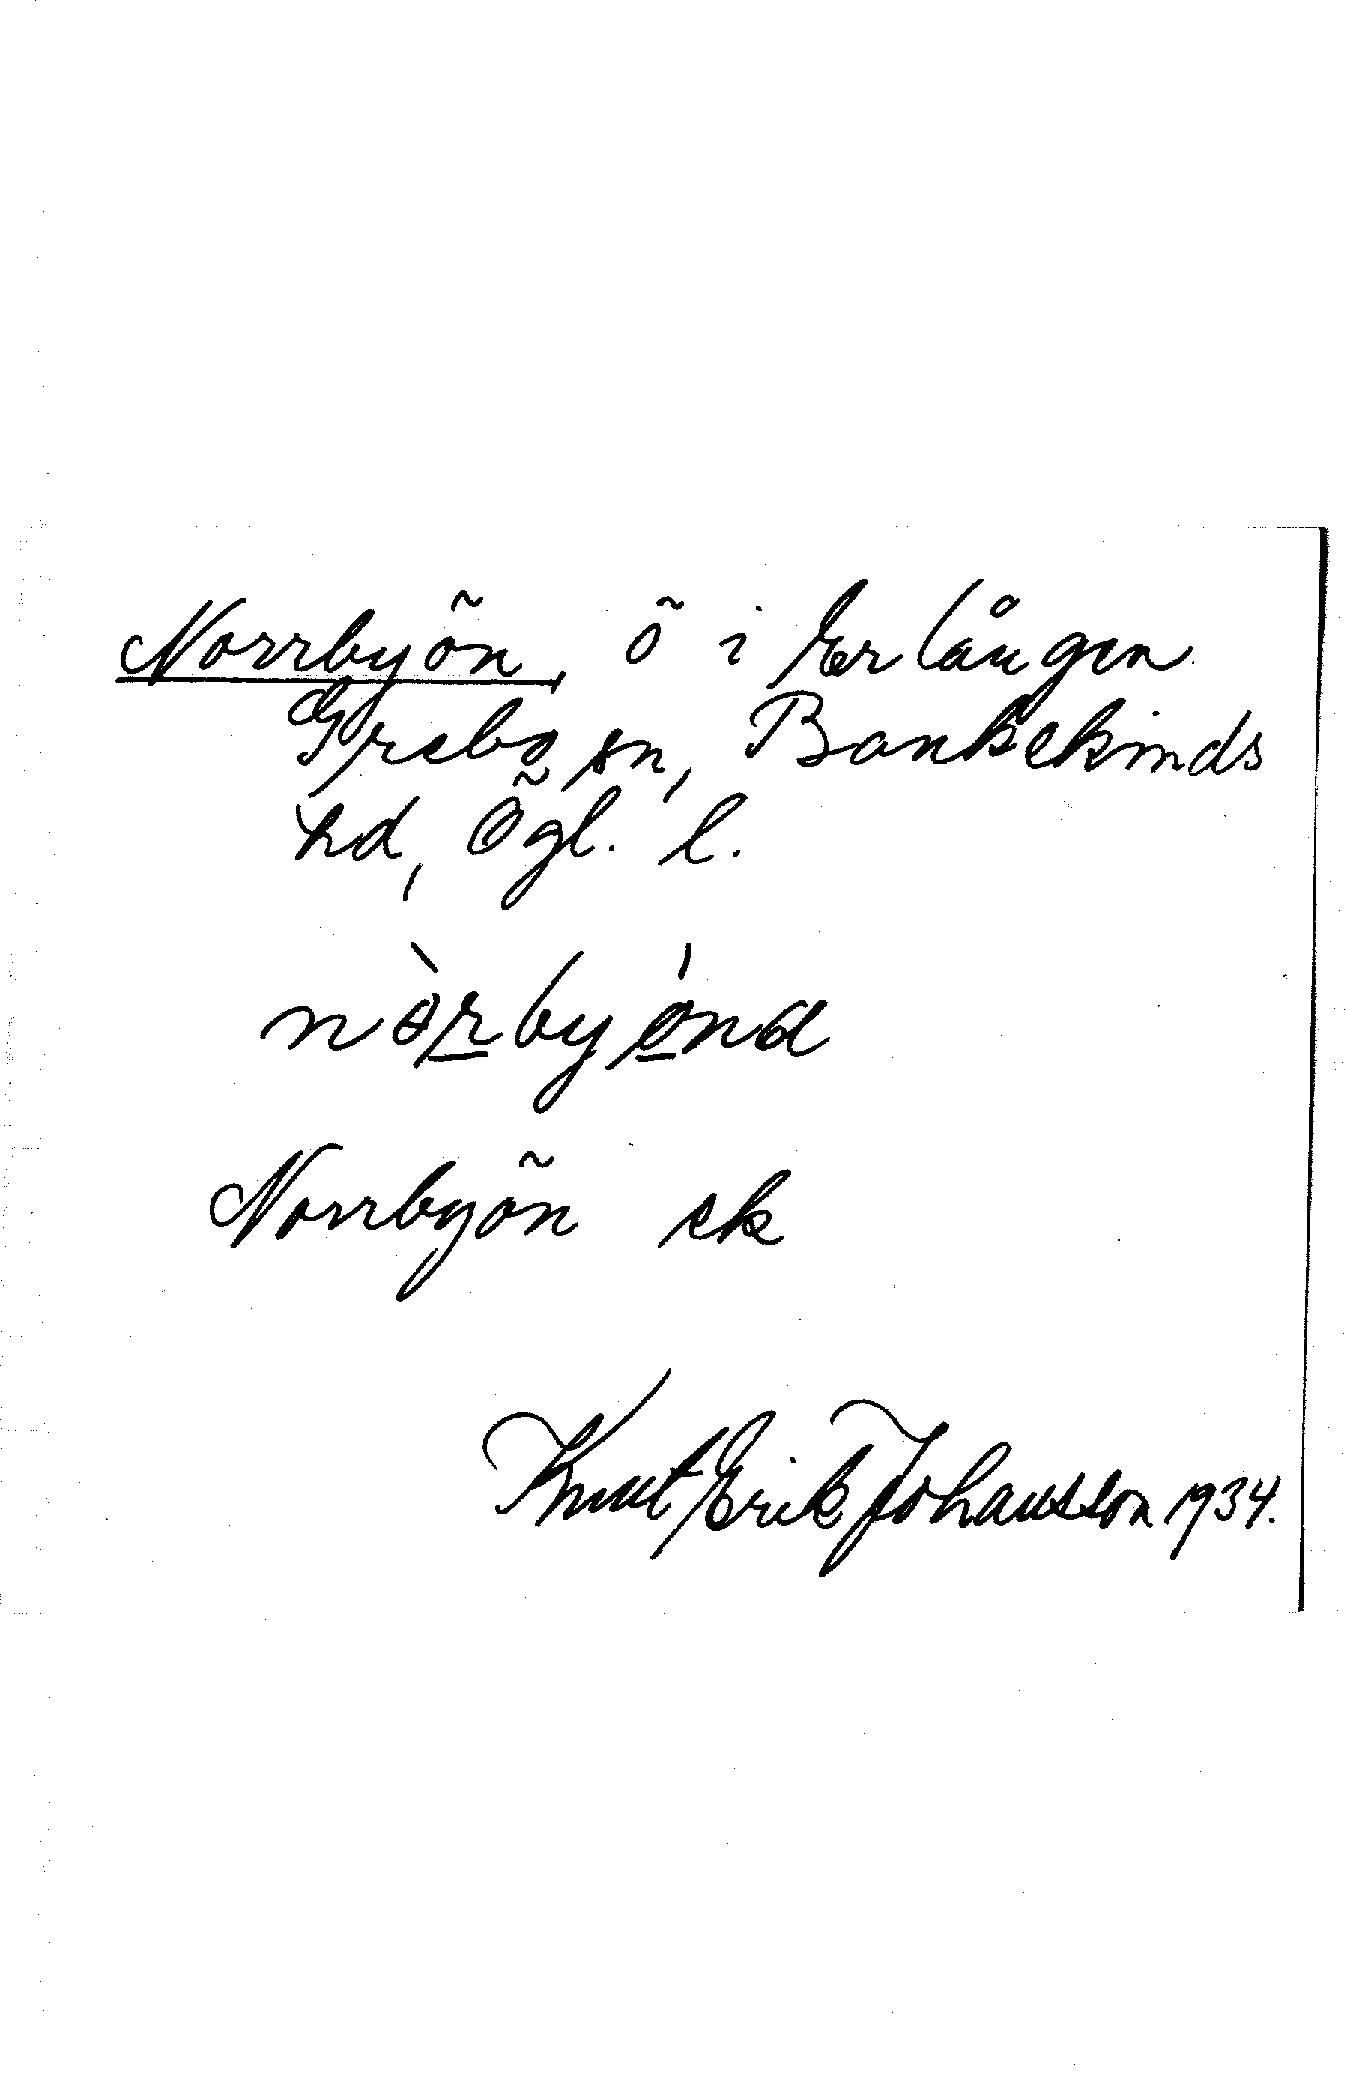 Norrbyön, ö i Erlången
Grebo sn, Bankekinds
hd, Ögl. l.
nòrbyǿnd
Norrbyön ek
Knut Erik Johansson 1934.